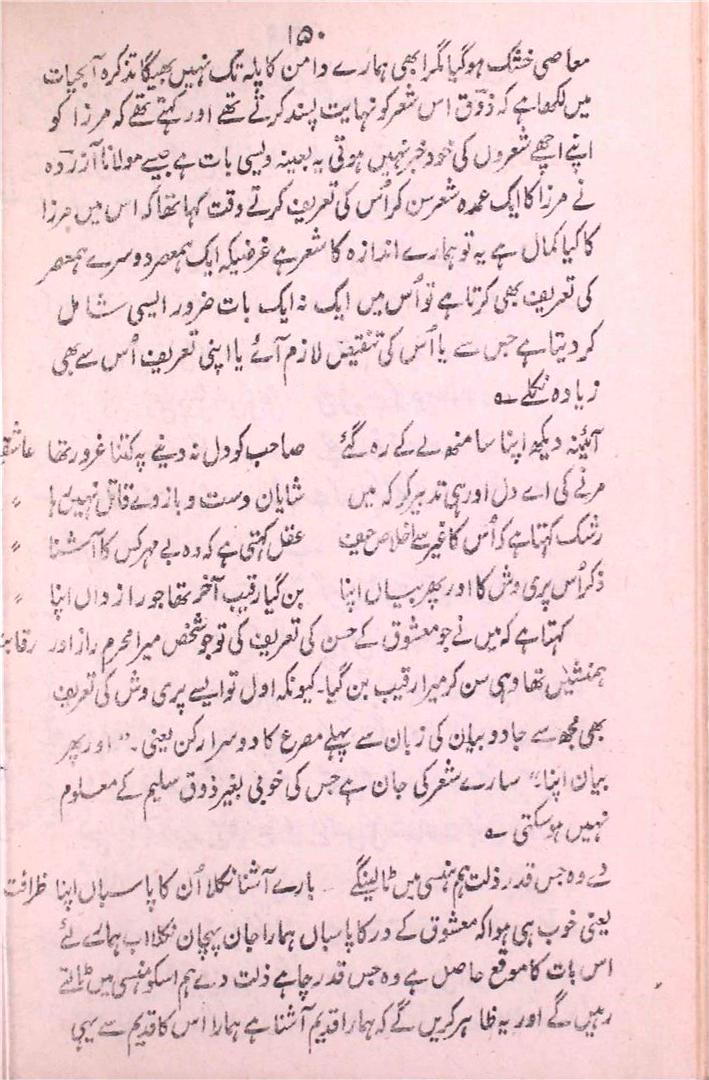 ۱۵۰
معاصی خشک ہوگیا مگر ابھی ہمارے دامن کا پلہ تک نہیں بھیگا تذکرہ آبحیات
میں لکھا ہے کہ ذوق اس شعر کو نہایت پسند کرتے تھے اور کہتے تھے کہ مرزا کو
اپنے اچھے شعروں کی خود خبر نہیں ہوتی یہ بعینہ ویسی بات ہے جیسے مولانا آزردہ
نے مرزا کا ایک عمدہ شعر سن کر اُس کی تعریف کرتے وقت کہا تھا کہ اس میں مرزا
کا کیا کمال ہے یہ تو ہمارے اندازہ کا شعر ہے غرضیکہ ایک ہمعصر دوسرے ہمعصر
کی تعریف بھی کرتا ہے تو اُس میں ایک نہ ایک بات ضرور ایسی شامل
کر دیتا ہے جس سے یا اُس کی تنقیص لازم آئے یا اپنی تعریف اُس سے بھی
زیادہ نکلے ؎
آئینہ دیکھ اپنا سا منھ لے کے رہ گئے صاحب کو دل نہ دینے پہ کتنا غرور تھا
مرنے کی اے دل اور ہی تدبیر کر کہ میں شایان دست و بازوے قاتل نہیں رہا 〃
رشک کہتا ہے کہ اُس کا غیر سے اخلاص حیف عقل کہتی ہے کہ وہ بے مہر کس کا آشنا 〃
ذکر اُس پری وش کا اور پھر بیاں اپنا بن گیا رقیب آخر تھا جو رازداں اپنا 〃
کہتا ہے کہ میں نے جو معشوق کے حسن کی تعریف کی تو جو شخص میرا محرم راز اور
ہمنشیں تھا وہی سن کر میرا رقیب بن گیا۔ کیونکہ اول تو ایسے پری وش کی تعریف
بھی مجھ سے جادو بیان کی زبان سے پہلے مصرع کا دوسرا رکن یعنی۔ "اور پھر
بیان اپنا۔" سارے شعر کی جان ہے جس کی خوبی بغیر ذوق سلیم کے معلوم
نہیں ہوسکتی ؎
دے وہ جس قدر ذلت ہم ہنسی میں ٹالینگے بارے آشنا نکلا اُن کا پاسباں اپنا ظرافت
یعنی خوب ہی ہوا کہ معشوق کے در کا پاسباں ہمارا جان پہچان نکلا اب ہمارے لئے
اس بات کا موقع حاصل ہے وہ جس قدر چاہے ذلت دے ہم اسکو ہنسی میں ٹالتے
رہیں گے اور یہ ظاہر کریں گے کہ ہمارا قدیم آشنا ہے ہمارا اس کا قدیم سے یہی